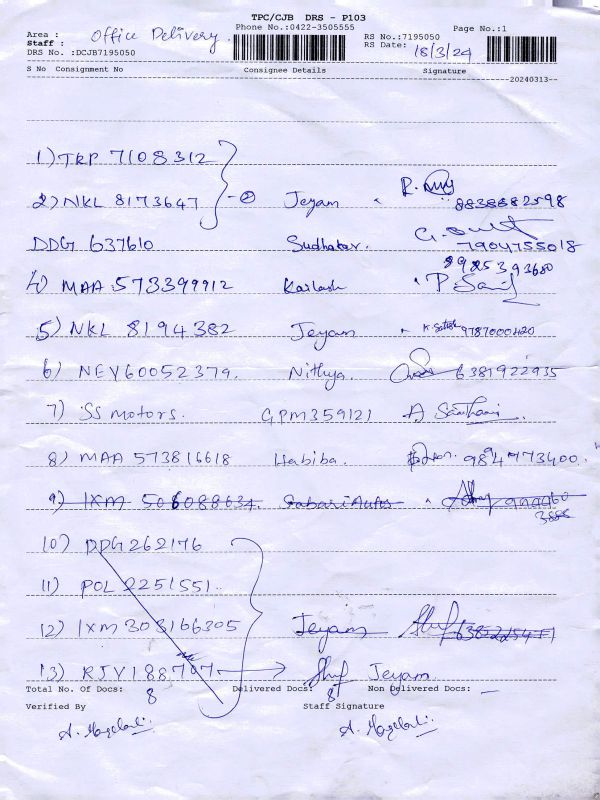 TPC/CJB DRS - P103
Phone No.:0422-3505555
Page No.:1
Area : Office Delivery.
Staff :
RS No.:7195050
DRS No. :DCJB7195050
RS Date: 18/3/24
S No Consignment No Consignee Details Signature
20240313
1) TRP 7108312
2) NKL 8173647 - 2 Jeyam 8838682598
DDG 637610 Sudhakar. 7904755018
8925393680
4) MAA 573399912 Kailash
5) NKL 8194382 Jeyam K. Satish 9787000420
6) NEY60052379. Nithya. 6381922935
7) SS Motors. GPM359121
8) MAA 573816618 Habiba. 9894773400.
9) IXM 506088634. SabariAutos
10) DDG262176
11) POL 2251551.
12) IXM 303166305 Jeyam
13) RJY188707 Jeyam
Total No. Of Docs: 8 Delivered Docs: 8 Non Delivered Docs: -
Verified By Staff Signature